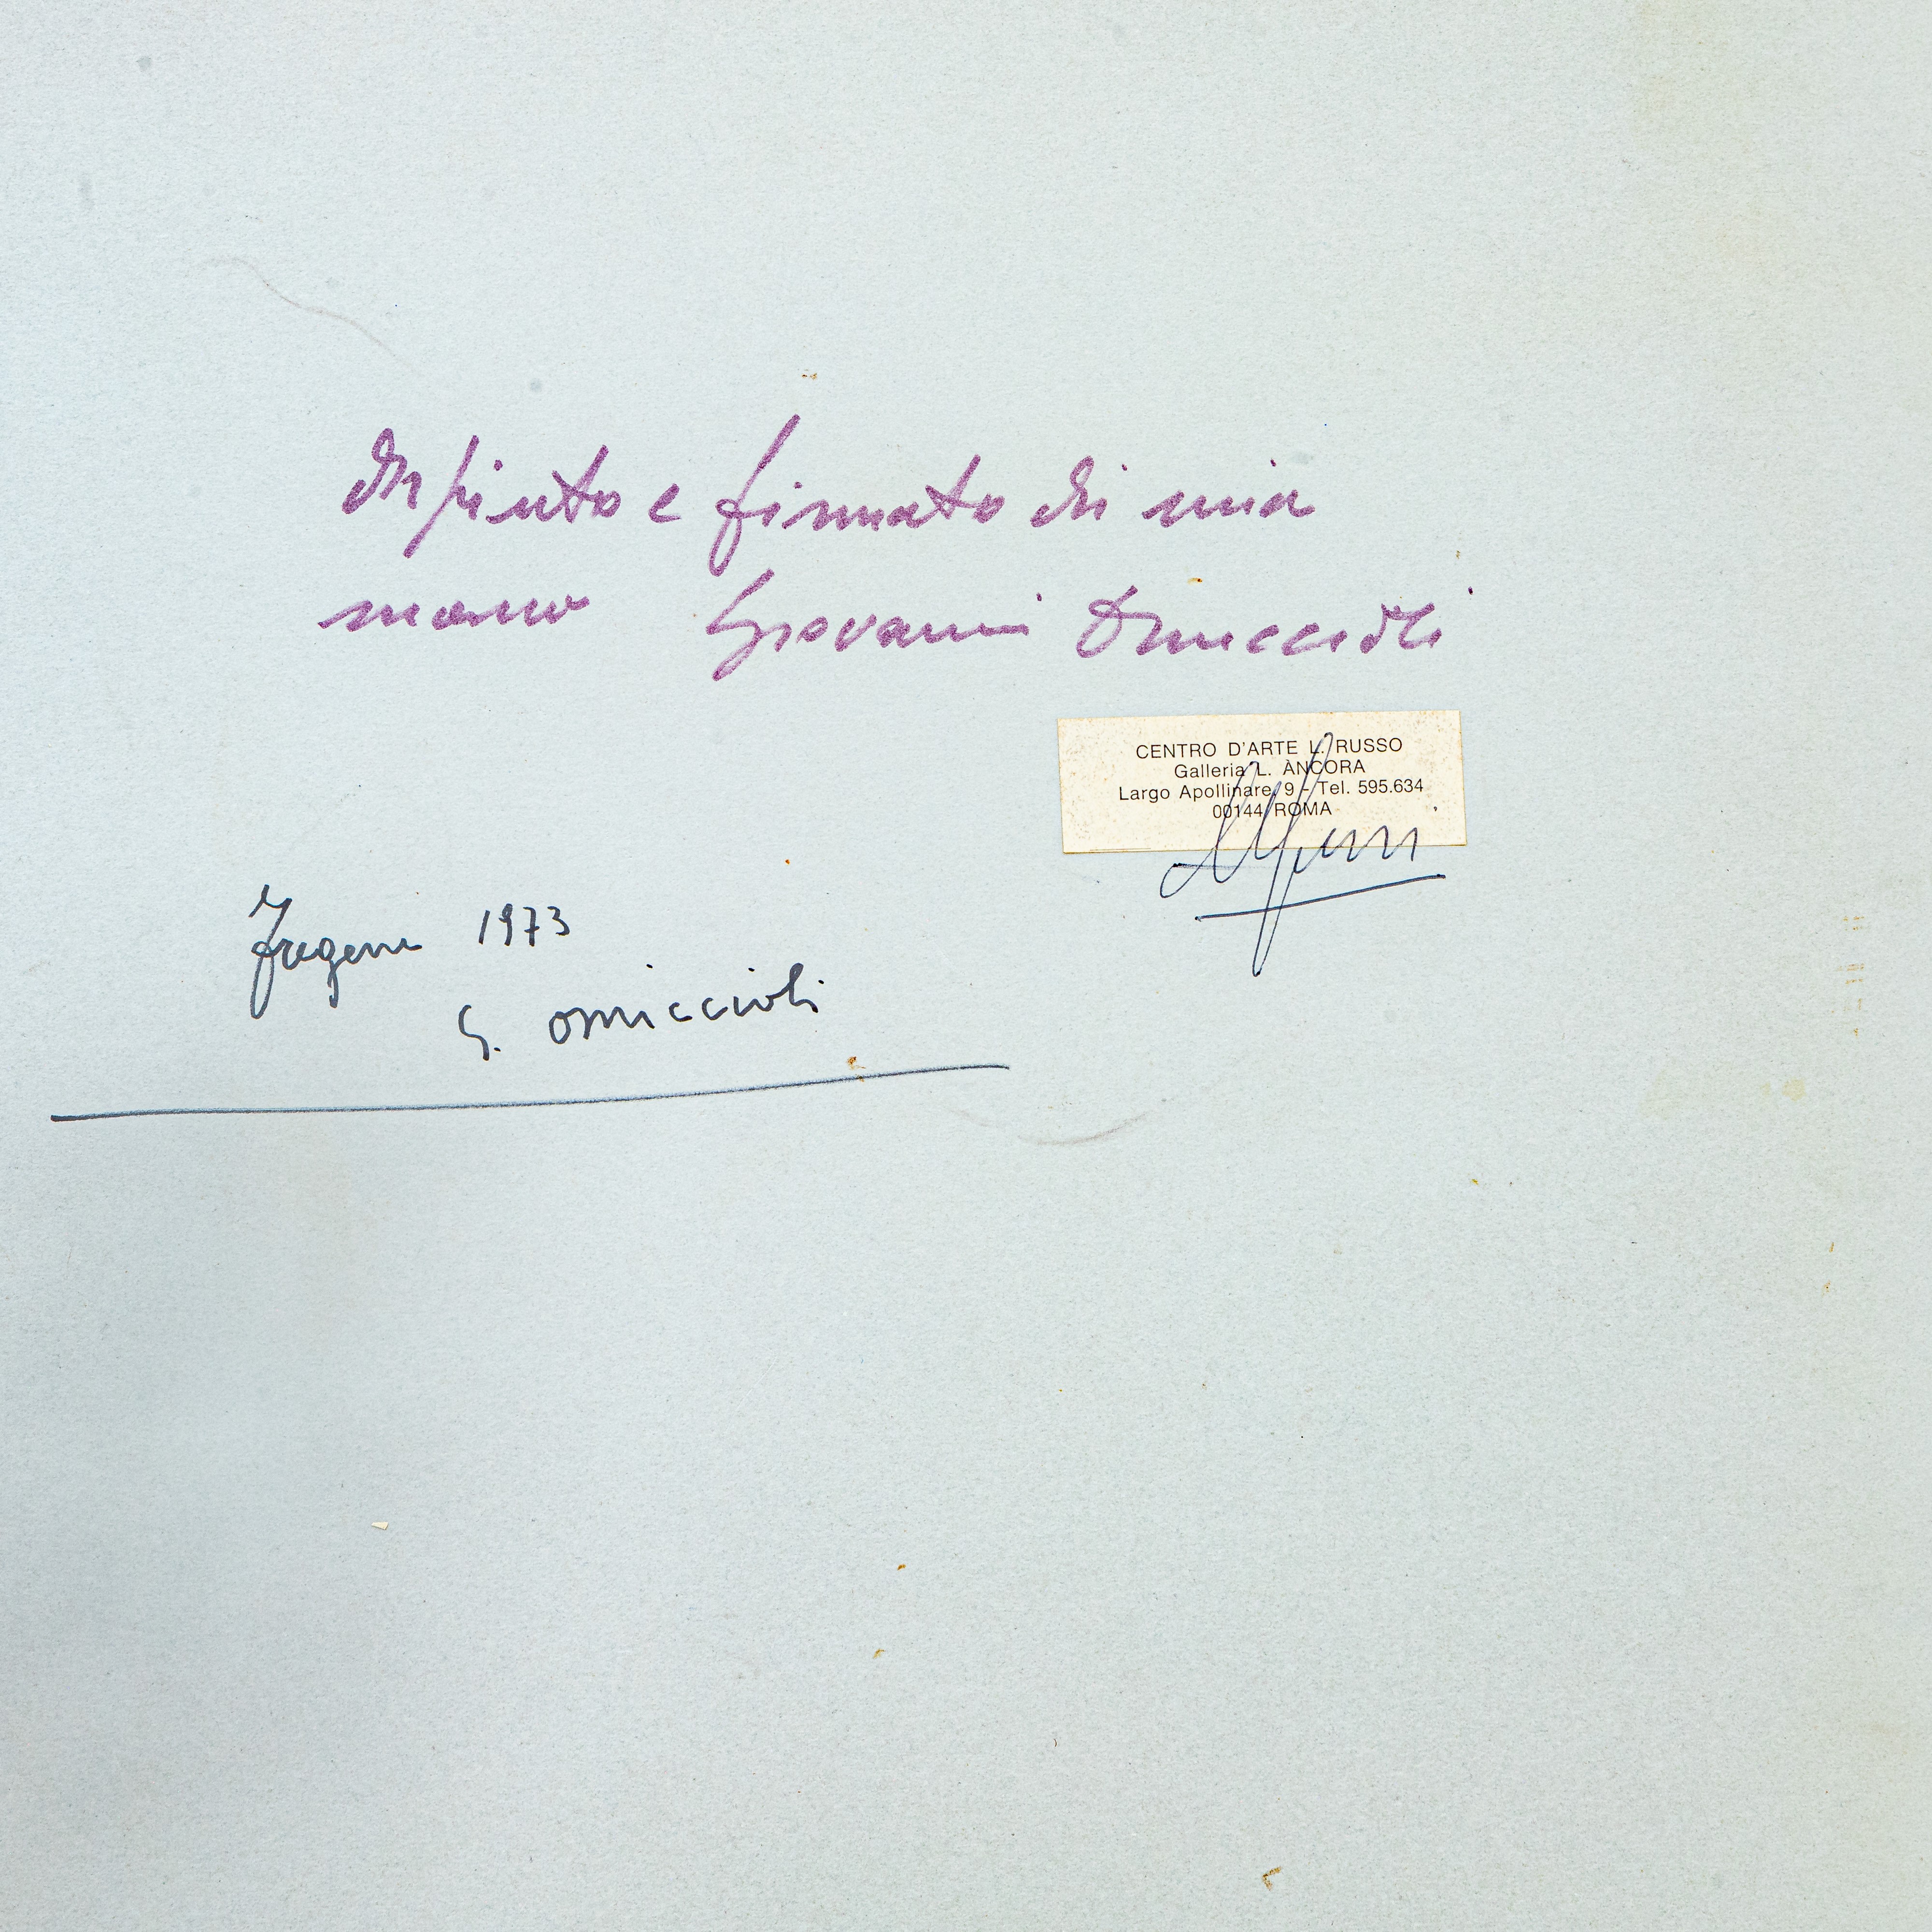 dipinto e firmato di mia
mano Giovanni Omiccioli
CENTRO D'ARTE L. RUSSO
Galleria L. ÀNCORA
Largo Apollinare, 9 - Tel. 595.634
00144 ROMA
Fregene 1973
G. Omiccioli